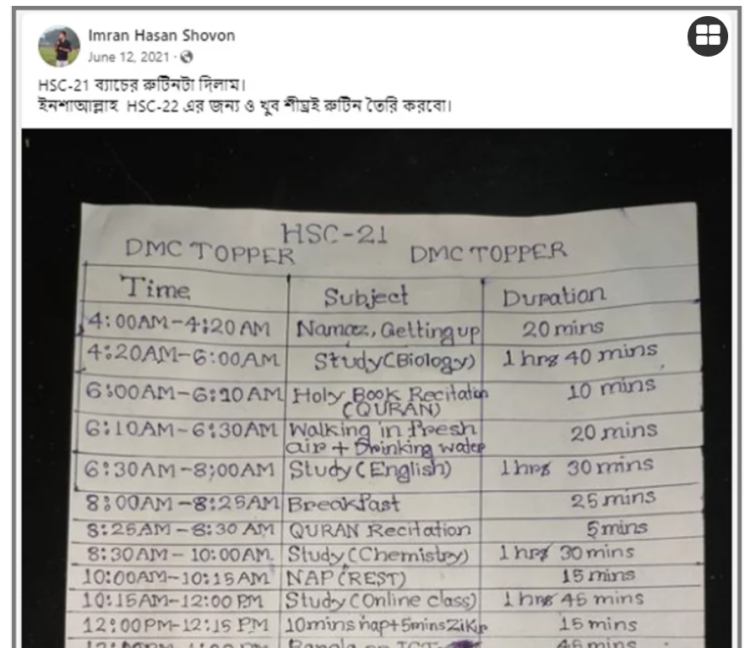 Imran Hasan Shovon
June 12, 2021 ·
HSC-21 ব্যাচের রুটিনটা দিলাম।
ইনশাআল্লাহ HSC-22 এর জন্য ও খুব শীঘ্রই রুটিন তৈরি করবো।
HSC-21
DMC TOPPER DMC TOPPER
Time Subject Duration
4:00AM-4:20AM Namaz, Getting up 20 mins
4:20AM-6:00AM Study(Biology) 1 hrs 40 mins
6:00AM-6:10AM Holy Book Recitation 10 mins
(QURAN)
6:10AM-6:30AM Walking in fresh 20 mins
air + Drinking water
6:30AM-8:00AM Study(English) 1hrs 30 mins
8:00AM-8:25AM Breakfast 25 mins
8:25AM-8:30AM QURAN Recitation 5mins
8:30AM-10:00AM. Study(Chemistry) 1 hrs 30mins
10:00AM-10:15AM NAP(REST) 15 mins
10:15AM-12:00 PM Study(Online class) 1 hrs 45 mins
12:00PM-12:15 PM 10mins nap+5minsZikir 15 mins
Bangla or ICT 45 mins